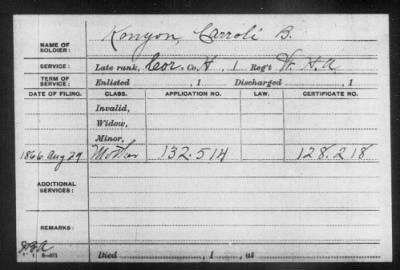 NAME OF SOLDIER: Kenyon, Carroll B.
SERVICE: Late rank, Cor. Co. H, 1 Reg't H. A
TERM OF SERVICE: Enlisted , 1 Discharged , 1
DATE OF FILING. CLASS. APPLICATION NO. LAW. CERTIFICATE NO.
Invalid,
Widow,
Minor,
1866 Aug 29 Mother 132.514 128.218
ADDITIONAL SERVICES:
REMARKS:
Died , 1 , at